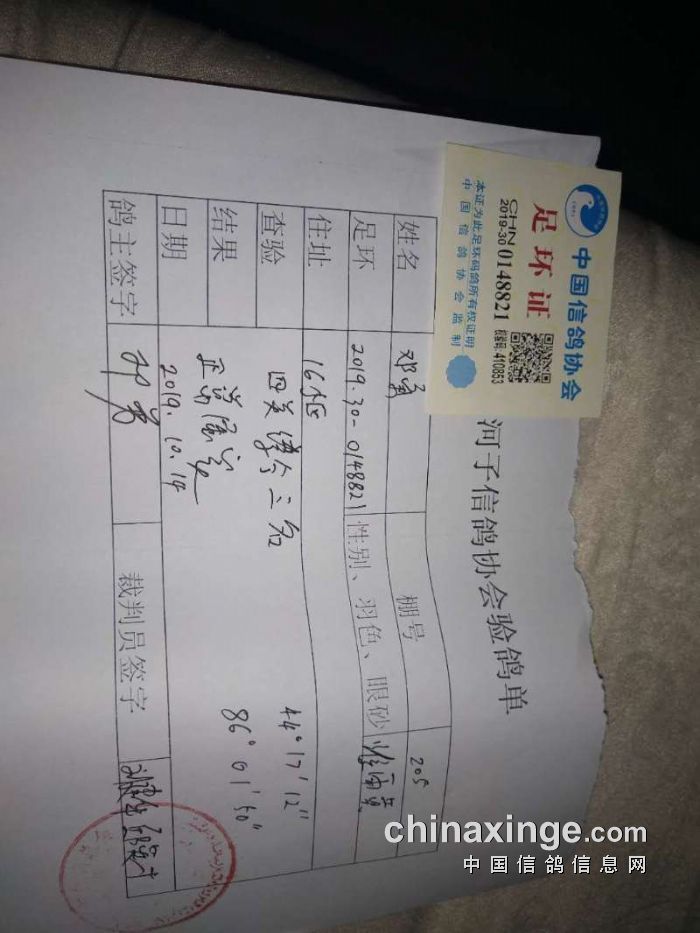 中国信鸽协会
足环证
CHN
2019-30 0148821
校验码: 410853
本证为此足环码鸽所有权证明
中国信鸽协会监制
河子信鸽协会验鸽单
姓名 邓勇 棚号 205
足环 2019.30-0148821 性别、羽色、眼砂
住址 16连 44°17′12″
查验 四关 三名 86°01′50″
结果
日期 2019.10.14
鸽主签字 裁判员签字
chinaxinge.com
中国信鸽信息网